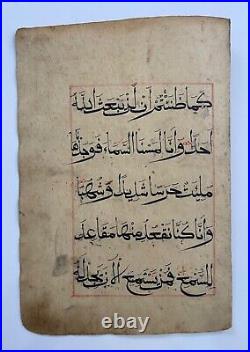 كَمَا ظَنَنْتُمْ أَنْ لَنْ يَبْعَثَ اللّٰهُ
اَحَدًا وَاَنَّا لَمَسْنَا السَّمَاءَ فَوَجَدْنَاهَا
مُلِئَتْ حَرَسًا شَدِيدًا وَشُهُبًا
وَاَنَّا كُنَّا نَقْعُدُ مِنْهَا مَقَاعِدَ
لِلسَّمْعِ فَمَنْ يَسْتَمِعِ الْاٰنَ يَجِدْ لَهُ